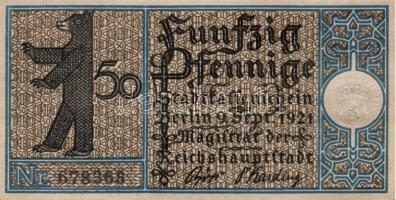 Funfzig
50 Pfennige
Stadtkassenschein
Berlin 9. Sept. 1921
Magistrat der
Reichshauptstadt
Nr. 678368